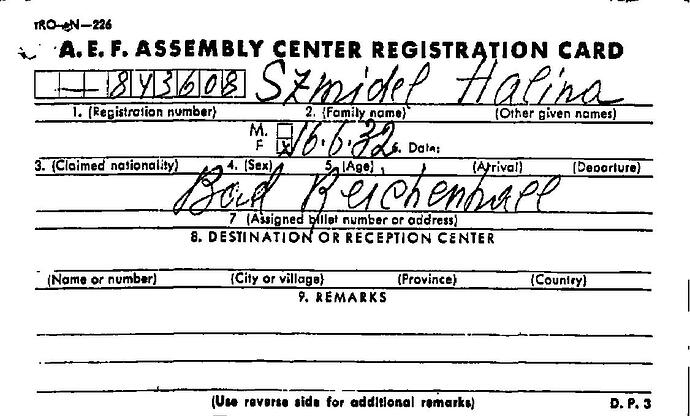 A.E.F. ASSEMBLY CENTER REGISTRATION CARD
843608 Szmidel Halina
1. (Registration number) 2. (Family name) (Other given names)
M.
F. x 16.6.32 6. Date:
3. (Claimed nationality) 4. (Sex) 5. (Age) (Arrival) (Departure)
Bad Reichenhall
7 (Assigned billet number or address)
8. DESTINATION OR RECEPTION CENTER
(Name or number) (City or village) (Province) (Country)
9. REMARKS
(Use reverse side for additional remarks) D. P. 3